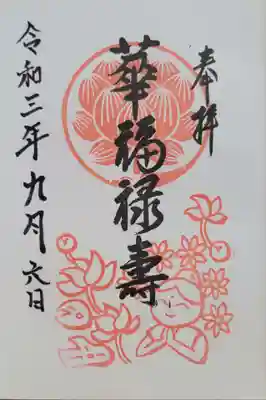 奉拝
華福禄壽
令和三年九月六日